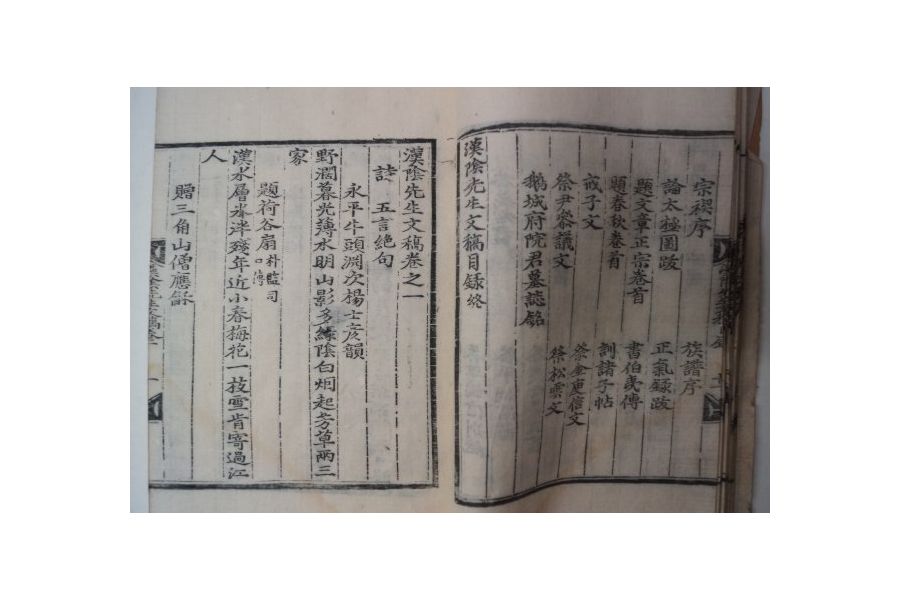 宗稧序
族譜序
論太極圖跋
正氣錄跋
題文章正宗卷首
書伯夷傳
題春秋卷首
訓諸子帖
戒子文
祭金重信文
祭尹參議文
祭松雲文
鵝城府院君墓誌銘
漢陰先生文稿目録終
漢陰先生文稿卷之一
詩 五言絶句
永平牛頭淵次楊士彦韻
野濶暮光薄水明山影多綠陰白烟起芳草兩三
家
題荷谷扇 朴監司口傳
漢水層峯泮殘年近小春梅花一枝雪肯寄過江
人
贈三角山僧應龢
漢陰先生文稿卷一
一